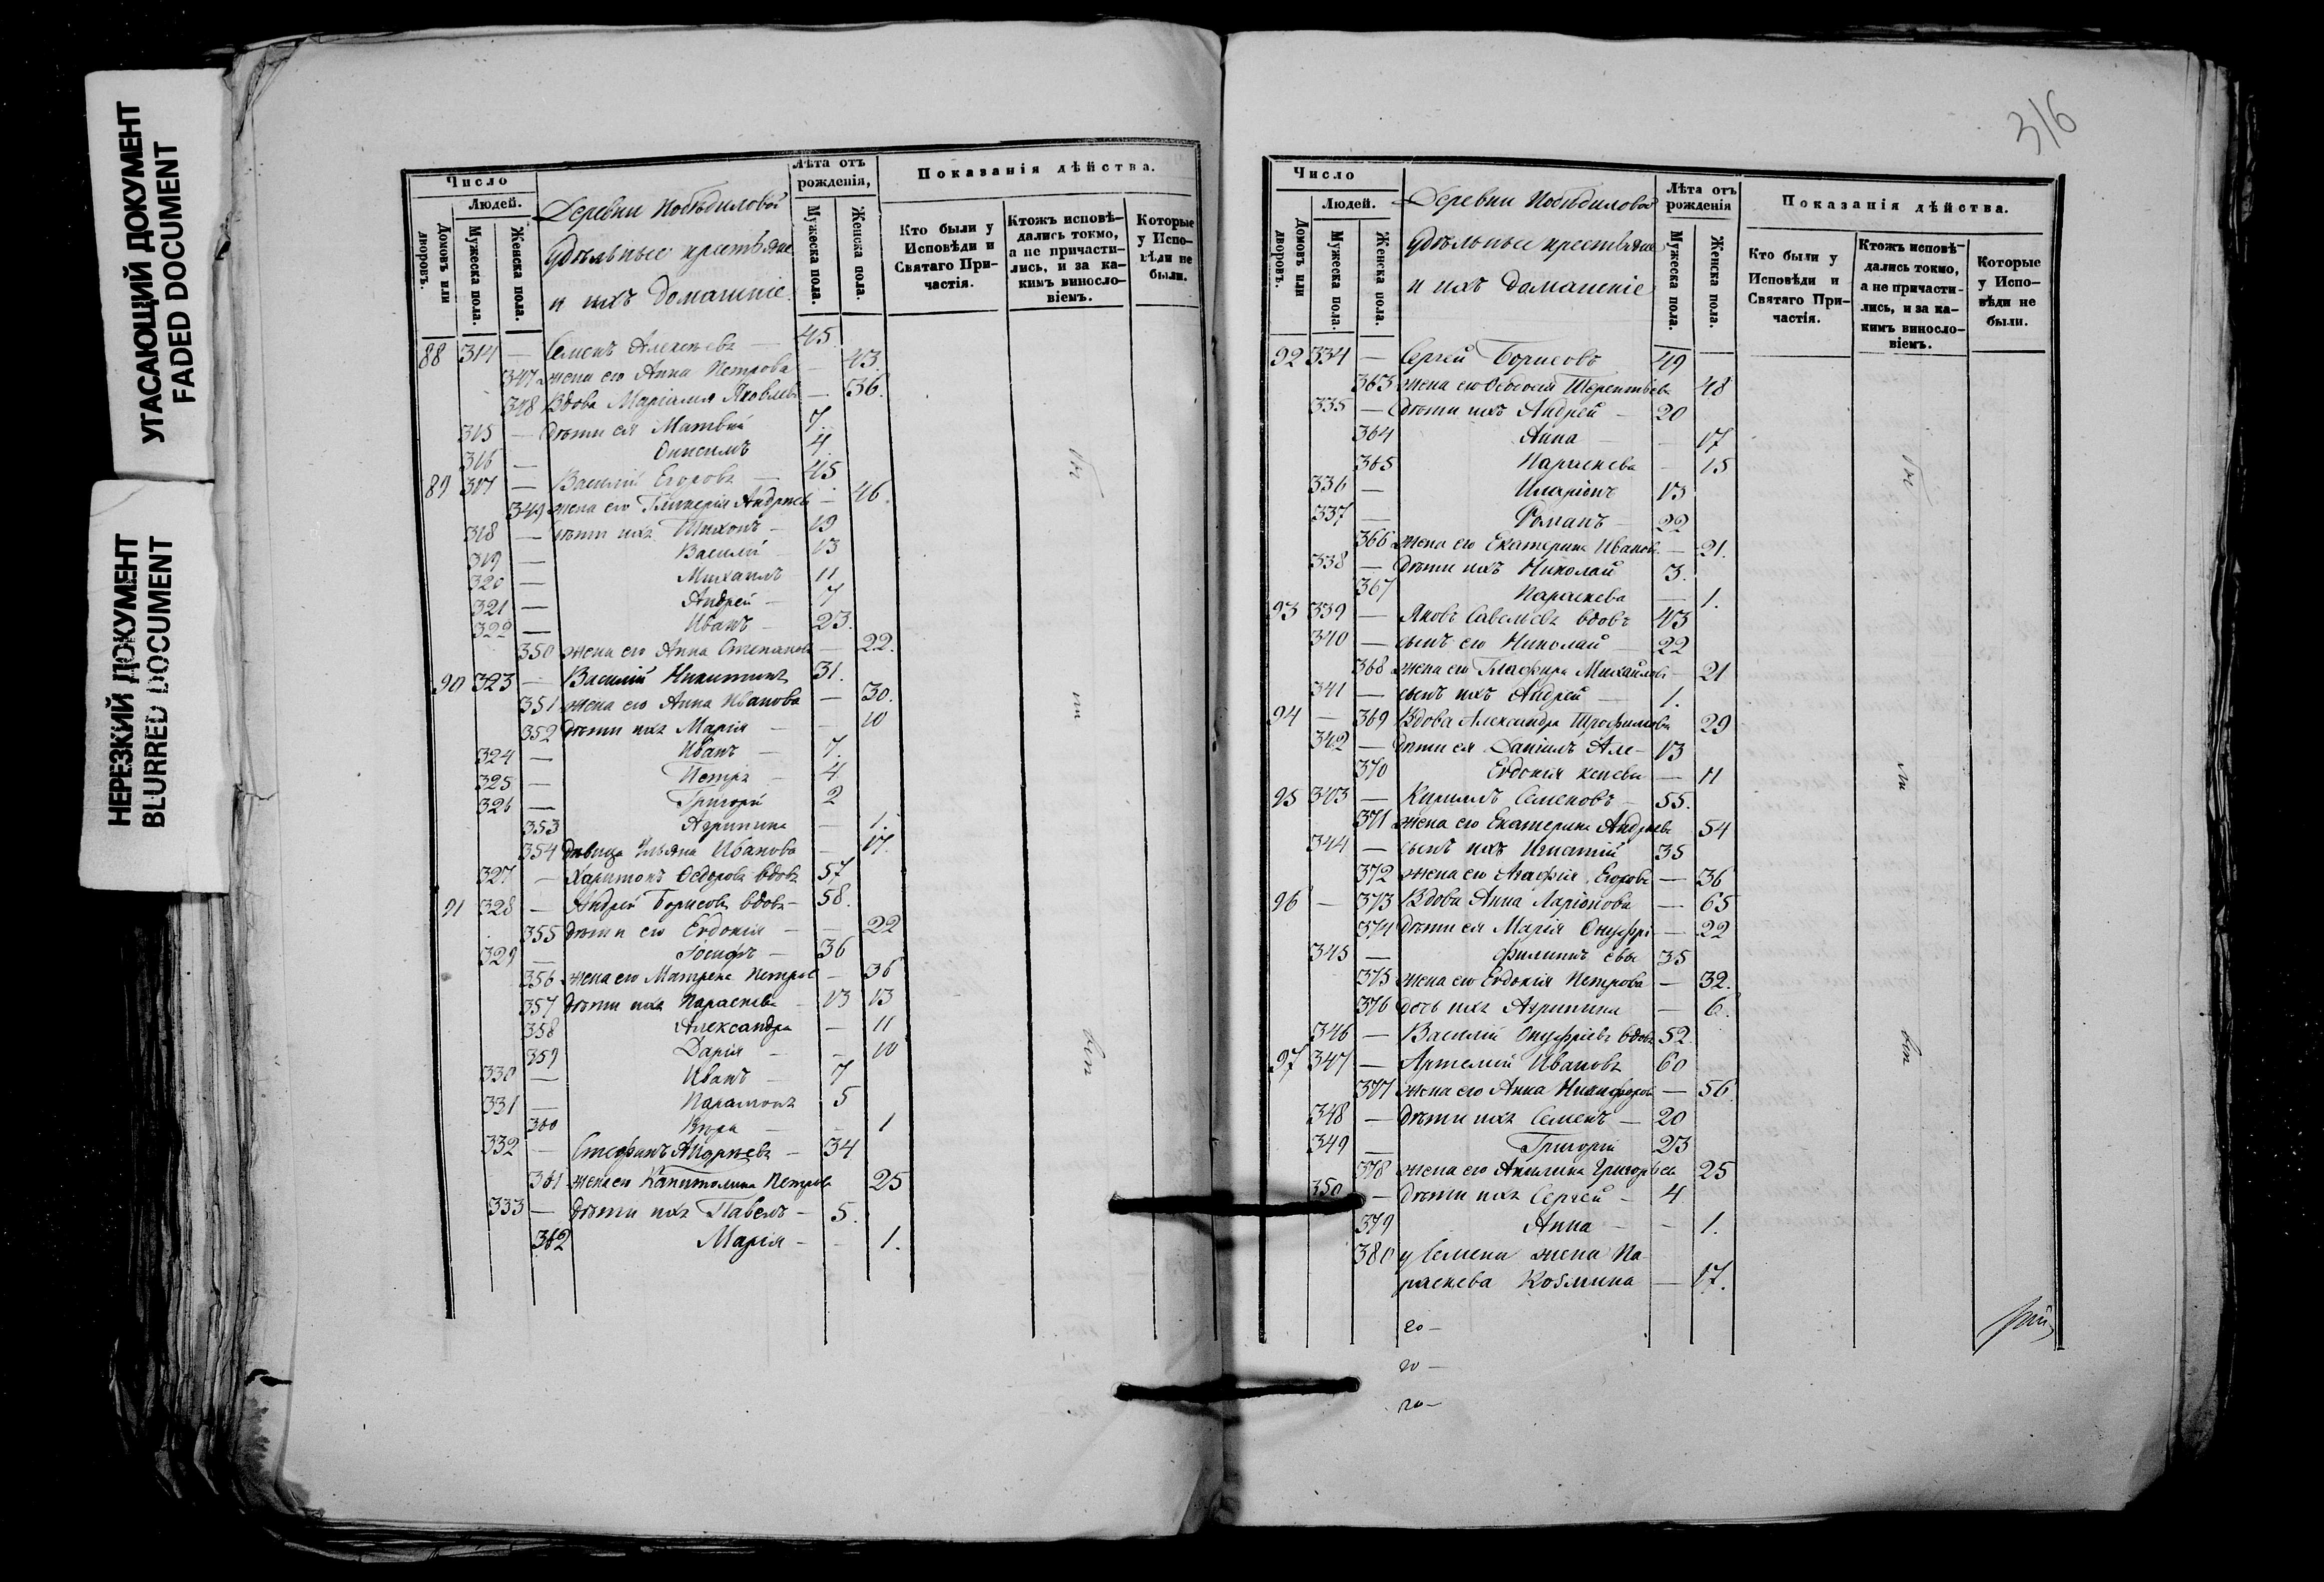 УГАСАЮЩИЙ ДОКУМЕНТ
FADED DOCUMENT
НЕРЕЗКИЙ ДОКУМЕНТ
BLURRED DOCUMENT
Число
Людей.
Домовъ или дворовъ.
Мужеска пола.
Женска пола.
Деревни
Удѣльные крестьяне
и ихъ домашніе
Лѣта отъ рожденія,
Мужеска пола.
Женска пола.
Показанія дѣйства.
Кто были у Исповѣди и Святаго Причастія.
Ктожъ исповѣдались токмо, а не причастились, и за какимъ винословіемъ.
Которые у Исповѣди не были.
88 314 — Семенъ Алексѣевъ — 45
347 жена его Анна Петрова — 43.
348 Вдова Маріамія Яковлева — 36.
315 — дѣти ея Матвей 7.
316 — Онисимъ 4
89 317 — Василій Егоровъ — 45
349 жена его Гликерія Андреева — 46.
318 — дѣти ихъ Тихонъ — 19
319 — Василій — 13
320 — Михаилъ 11
321 — Андрей — 7
322 — Иванъ — 23.
350 жена его Анна Степанова — 22.
90 323 — Василій Никитинъ 31.
351 жена его Анна Иванова — 30.
352 дѣти ихъ Марія — — 10
324 — Иванъ — 7.
325 — Петръ — 4
326 — Григорій 2
353 Агрипина — 1.
354 дѣвица Ульяна Иванова — 17.
327 — Харитонъ Ѳедоровъ вдовъ 57
91 328 — Андрей Борисовъ вдовъ — 58.
355 дѣти его Евдокія — — 22
329 — Іосифъ — 36
356 жена его Матрена Петрова — 36
357 дѣти ихъ Параскева — 13 13
358 Александра — 11
359 Дарія — — 10
330 — Иванъ — 7
331 — Парамонъ 5
360 — — 1
332 — Стефанъ Андреевъ — 34
361 жена его Капитолина Петрова 25
333 — дѣти ихъ Павелъ — 5.
362 Марія — — 1.
316
Число
Людей.
Домовъ или дворовъ.
Мужеска пола.
Женска пола.
Деревни
Удѣльные крестьяне
и ихъ домашніе
Лѣта отъ рожденія
Мужеска пола.
Женска пола.
Показанія дѣйства.
Кто были у Исповѣди и Святаго Причастія.
Ктожъ исповѣдались токмо, а не причастились, и за какимъ винословіемъ.
Которые у Исповѣди не были.
92 334 — Сергей Борисовъ 49
363 жена его Терентьева 48
335 — дѣти ихъ Андрей — 20
364 Анна — — 17
365 Параскева — 15
336 — Иларіонъ 13
337 — Романъ — 22
366 жена его Екатерина Иванова — 21.
338 — дѣти ихъ Николай 3.
367 Параскева — 1.
93 339 — Яковъ Савельевъ вдовъ 43
340 — сынъ его Николай — 22
368 жена его Глафира Михайлова — 21
341 — сынъ ихъ Андрей — 1.
94 — 369 Вдова Александра Трофимова 29
342 — дѣти ея Даніилъ Але- 13
370 Евдокія ксеевы — 11
95 343 — Кириллъ Семеновъ — 55.
371 жена его Екатерина Андреева 54
344 — сынъ ихъ Игнатій 35
372 жена его Агафія Егорова — 36
96 — 373 Вдова Анна Ларіонова — 65
374 дѣти ея Марія Онуфрі — 22
345 — Филиппъ евы 35
375 жена его Евдокія Петрова — 32.
376 дочь ихъ Агрипина — 6.
346 — Василій Онуфріевъ вдовъ 52
97 347 — Артемій Ивановъ 60
377 жена его Анна Никифорова — 56
348 — дѣти ихъ Семенъ — 20
349 — Григорій 23
378 жена его Акилина Григорьева 25
350 — дѣти ихъ Сергей — 4.
379 Анна — — 1.
380 у Семена жена Па
раскева Козмина — 17.